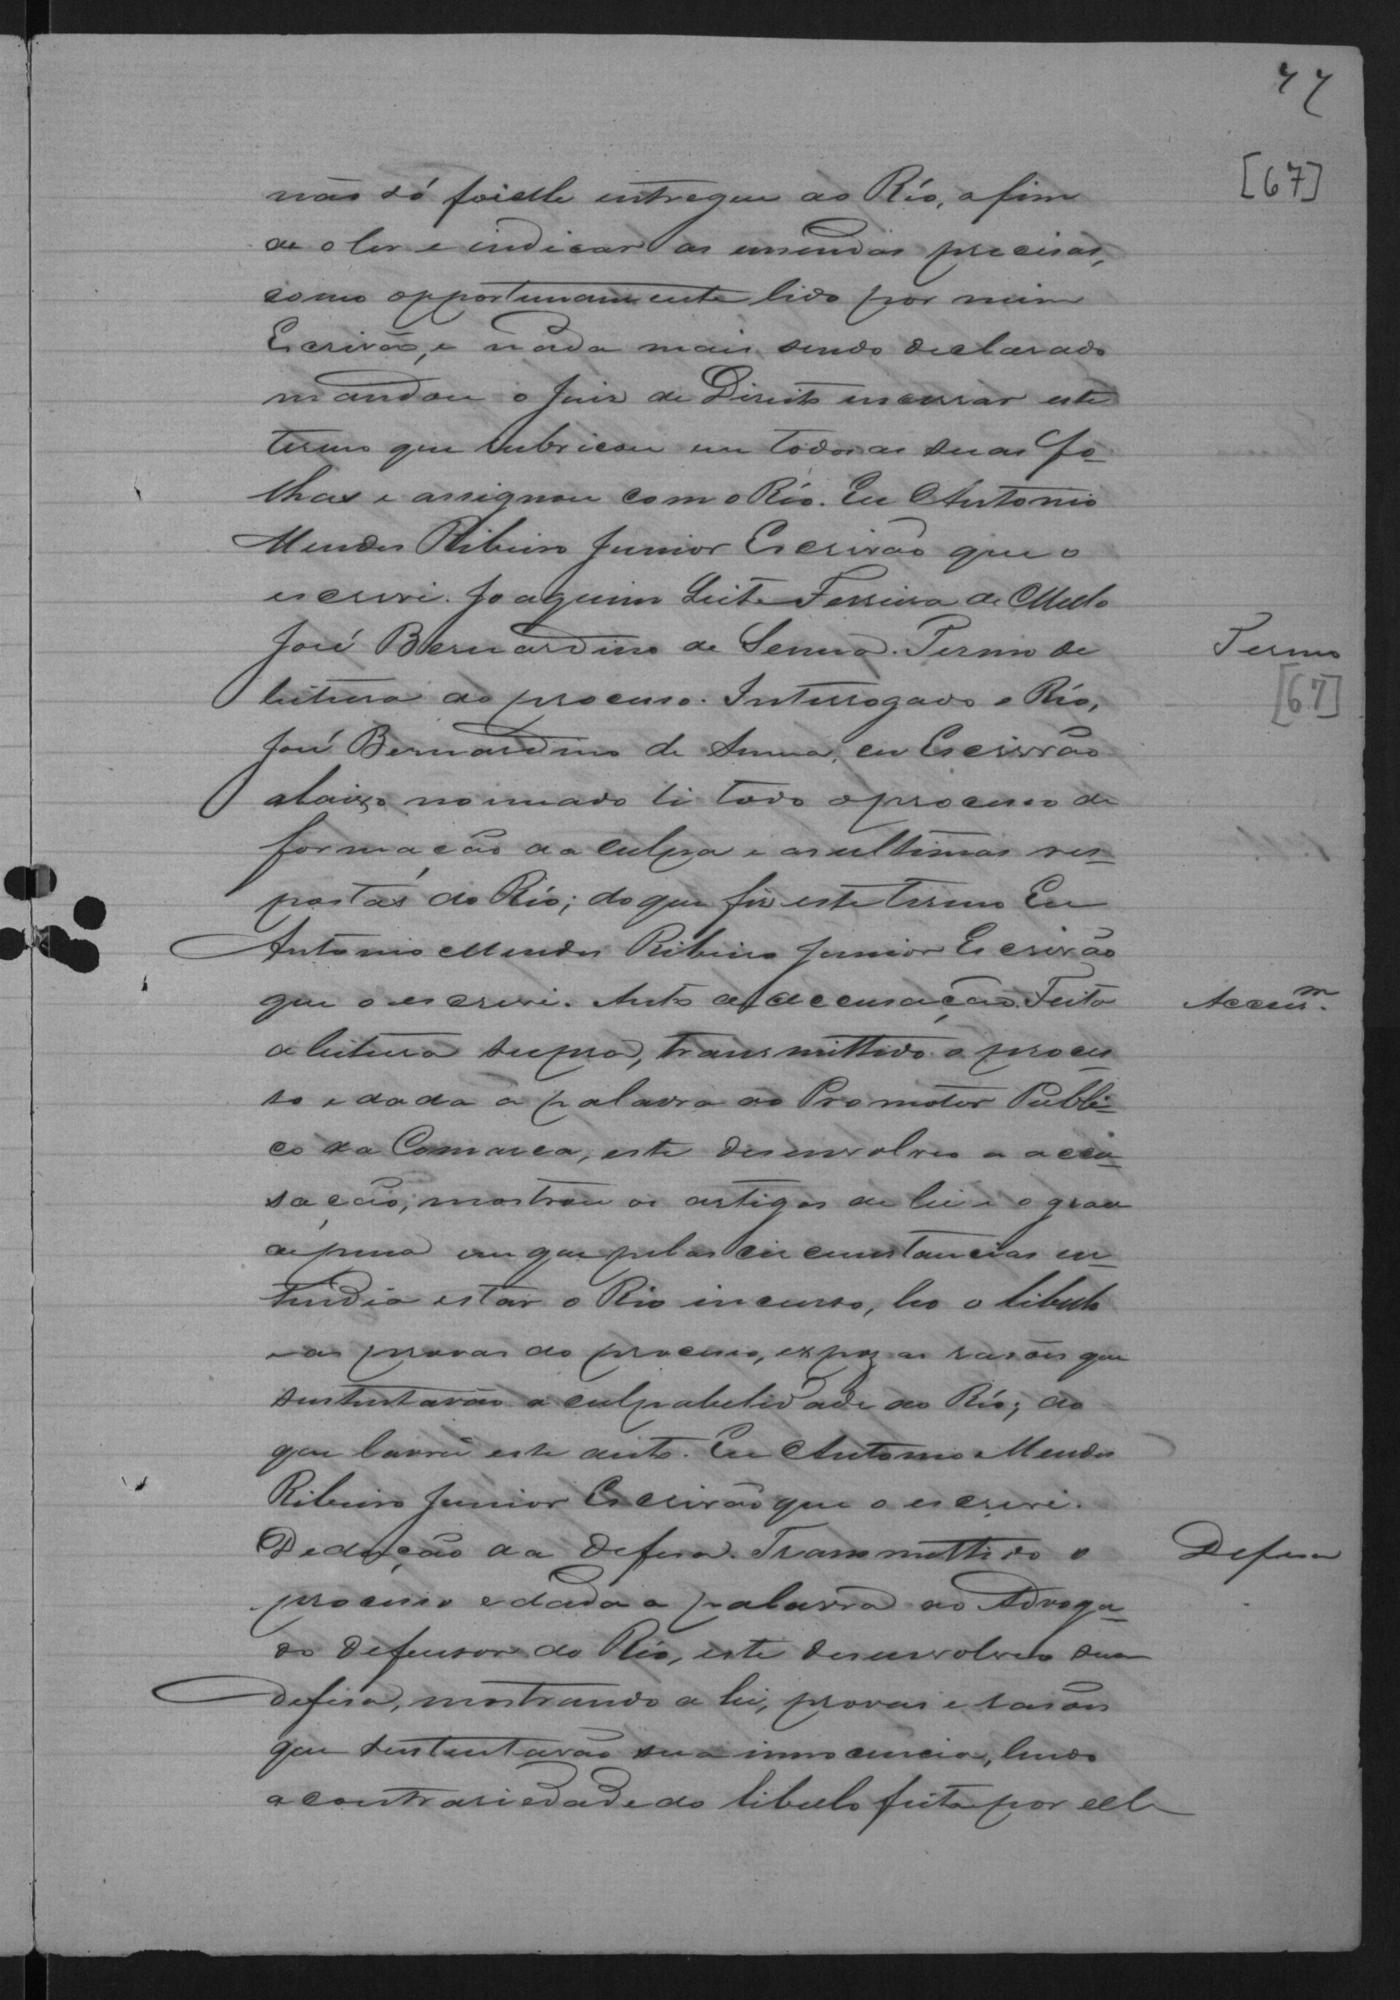 77
[67]
não só foi elle entregue ao Réo, afim
de o ler e indicar as emendas precisas,
como opportunamente lido por mim
Escrivão, e nada mais sendo declarado
mandou o Juiz de Direito encerrar este
termo que rubricou em todas as suas fo-
lhas e assignou com o Réo. Eu Antonio
Mendes Ribeiro Junior Escrivão que o
escrevi. Joaquim Leite Ferreira de Mello
José Bernardino de Senna. Termo de
Termo
[67]
leitura do processo. Interrogado o Réo,
José Bernardino de Senna, eu Escrivão
abaixo nomeado li todo o processo de
formação da culpa e as ultimas res-
postas do Réo; do que fiz este termo Eu
Antonio Mendes Ribeiro Junior Escrivão
que o escrevi. Auto de accusação. Feita
Accusm.
a leitura supra, transmittido o proces-
so e dada a palavra ao Promotor Publi-
co da Comarca, este desenvolveu a accu-
sação, mostrou os artigos de lei e o grau
de pena em que pelas circumstancias en-
tendia estar o Réo incurso, leo o libello
e as provas do processo, expoz as rasões que
sustentavão a culpabelidade do Réo; do
que lavrei este auto. Eu Antonio Mendes
Ribeiro Junior Escrivão que o escrevi.
Dedução da defesa. Transmittido o
Defesa
processo e dada a palavra ao Advoga-
do defensor do Réo, este desenvolveu sua
defesa, mostrando a lei, provas e rasões
que sustentavão sua innocencia, lendo
a contrariedade do libello feita por elle